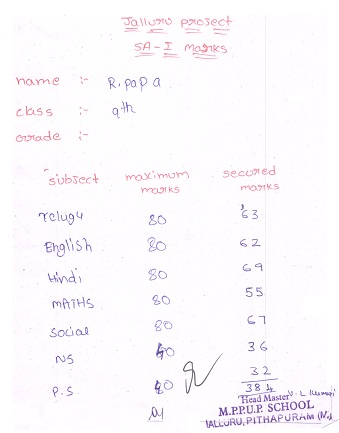 Jalluru project
SA-I marks
name :- R.papa
class :- 9th
grade :-
subject maximum marks secured marks
Telugu 80 63
English 80 62
Hindi 80 69
MATHS 80 55
Social 80 67
NS 40 36
P.S 40 32
384
Head Master
M.P.P.U.P. SCHOOL
JALLURU, PITHAPURAM (M.)